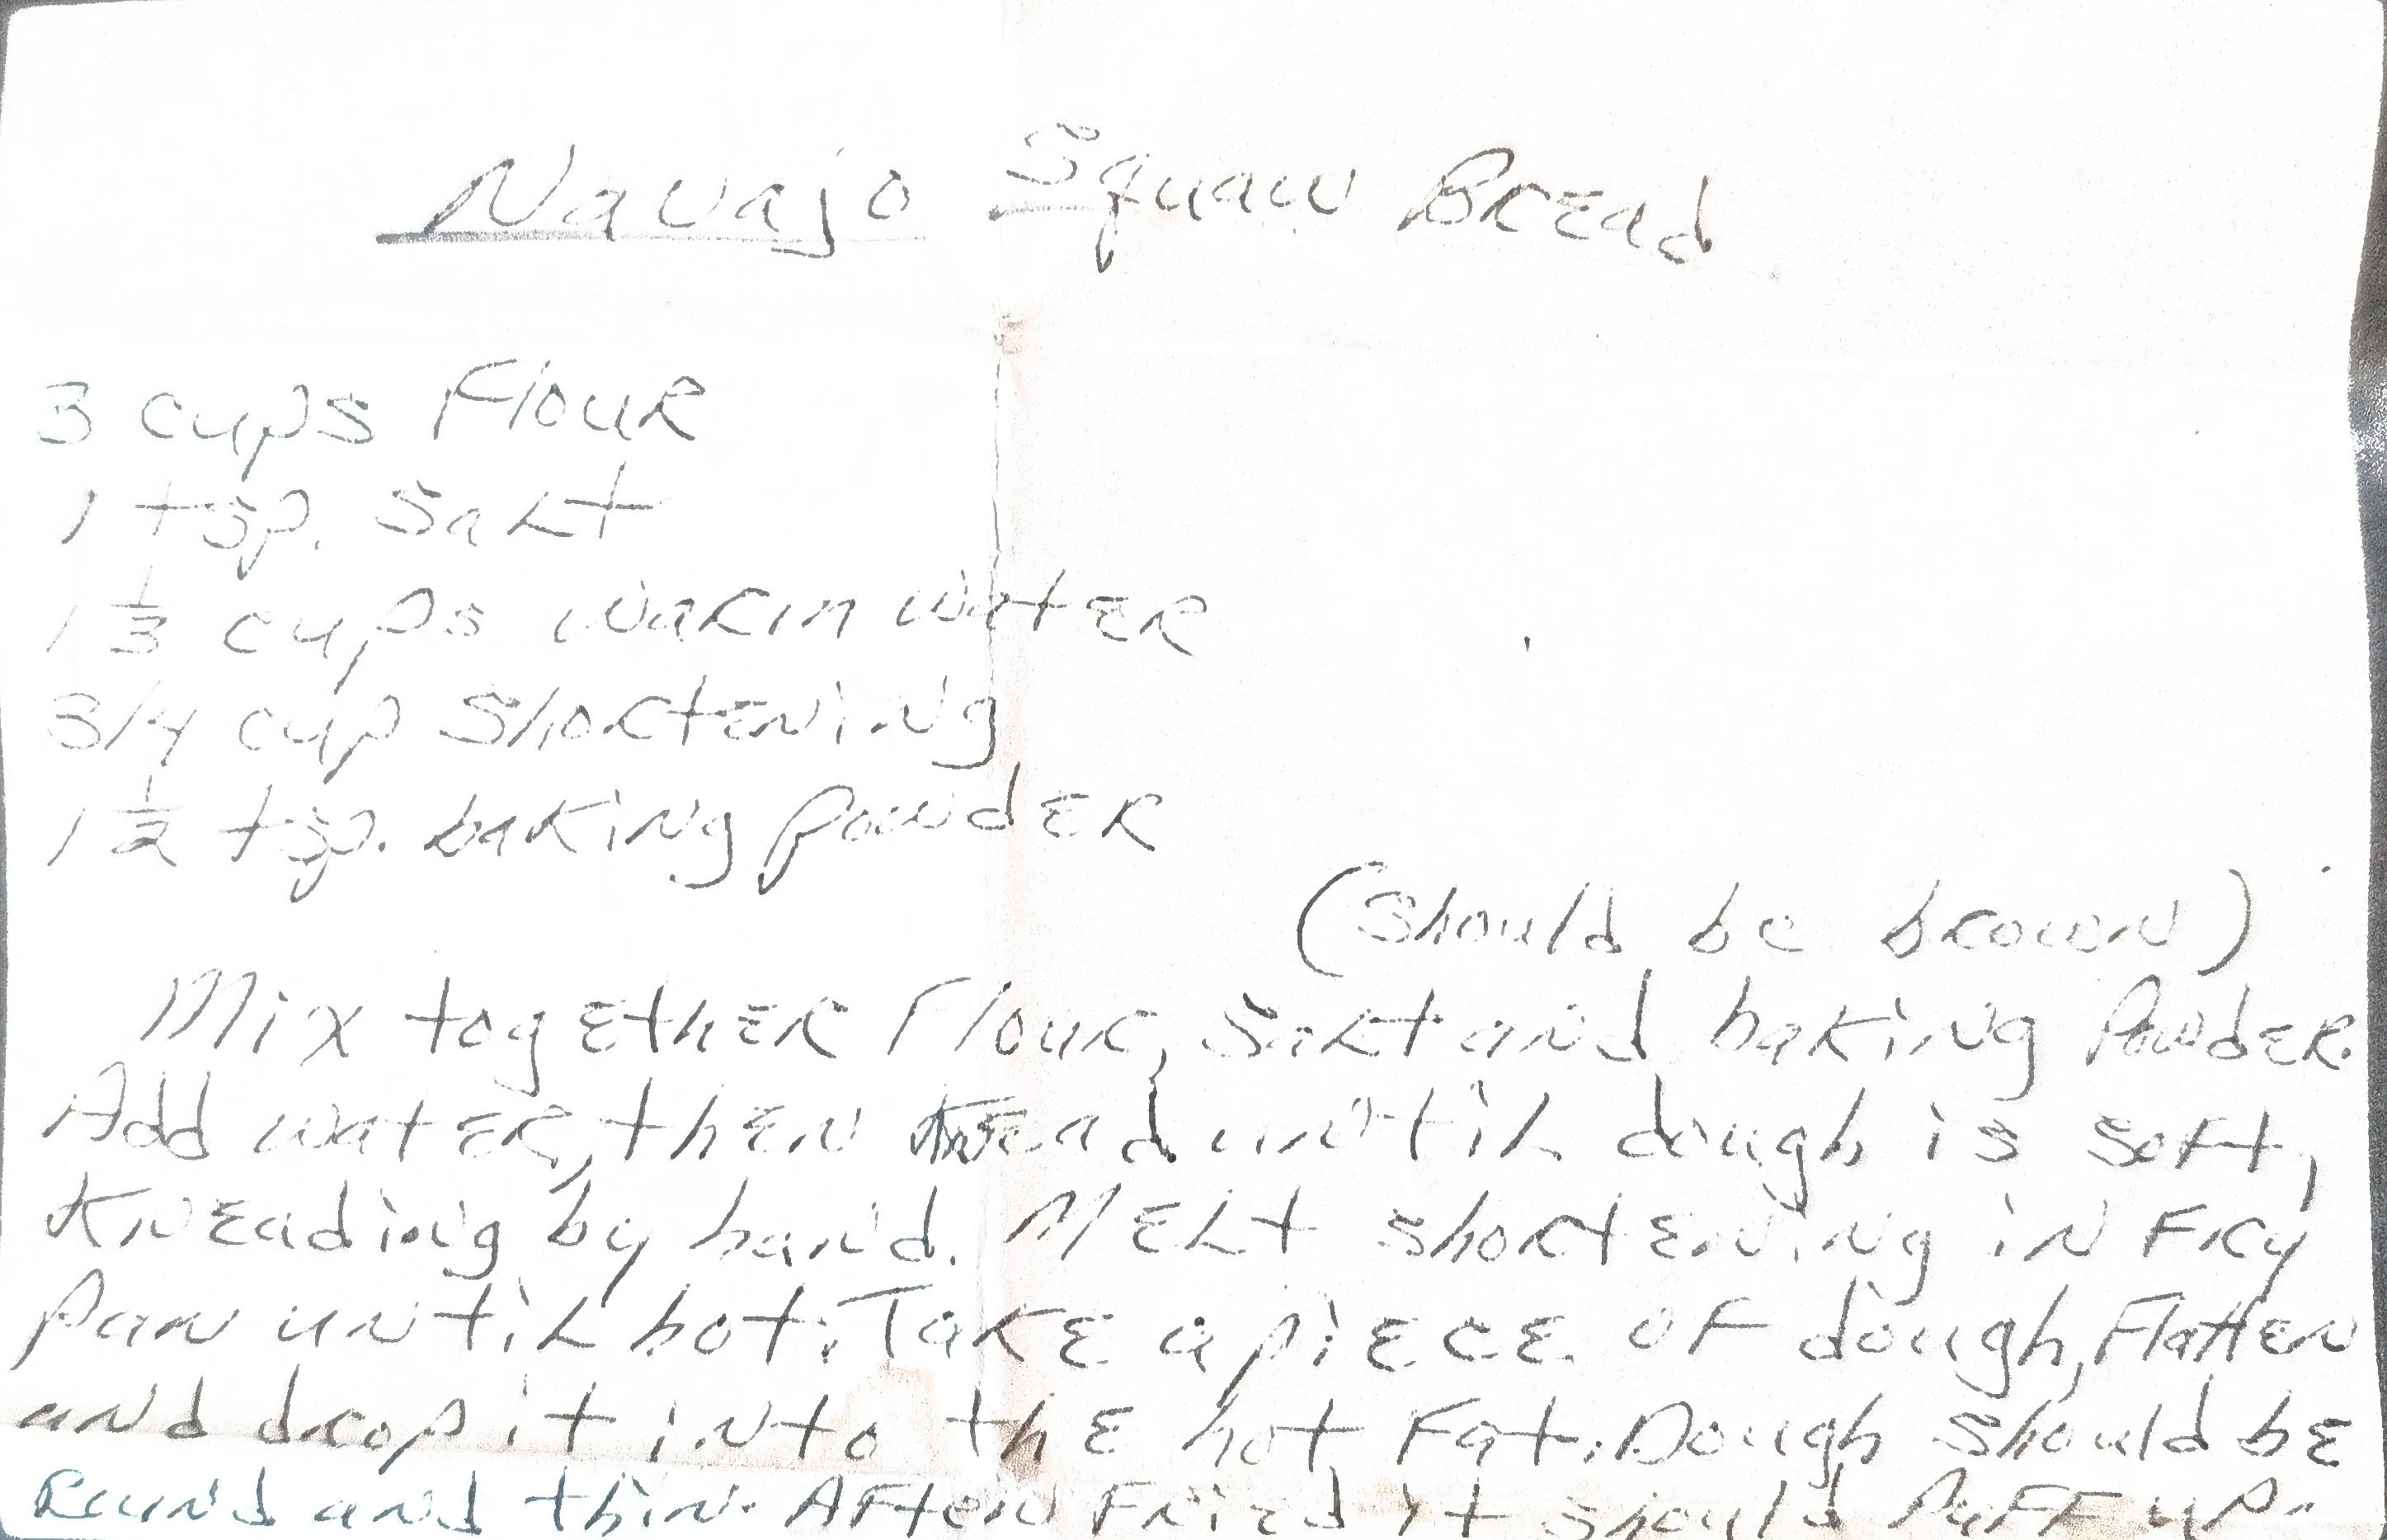 Navajo Squaw Bread
3 cups Flour
1 tsp. Salt
1 1/3 cups warm water
3/4 cup Shortening
1 1/2 tsp. baking powder
(Should be brown)
Mix together Flour, Salt and baking Powder.
Add water, then knead until dough is soft,
Kneading by hand. Melt shortening in Fry
Pan until hot. Take a piece of dough, Flatten
and drop it into the hot Fat. Dough should be
Round and thin. After Fried it should Puff up.